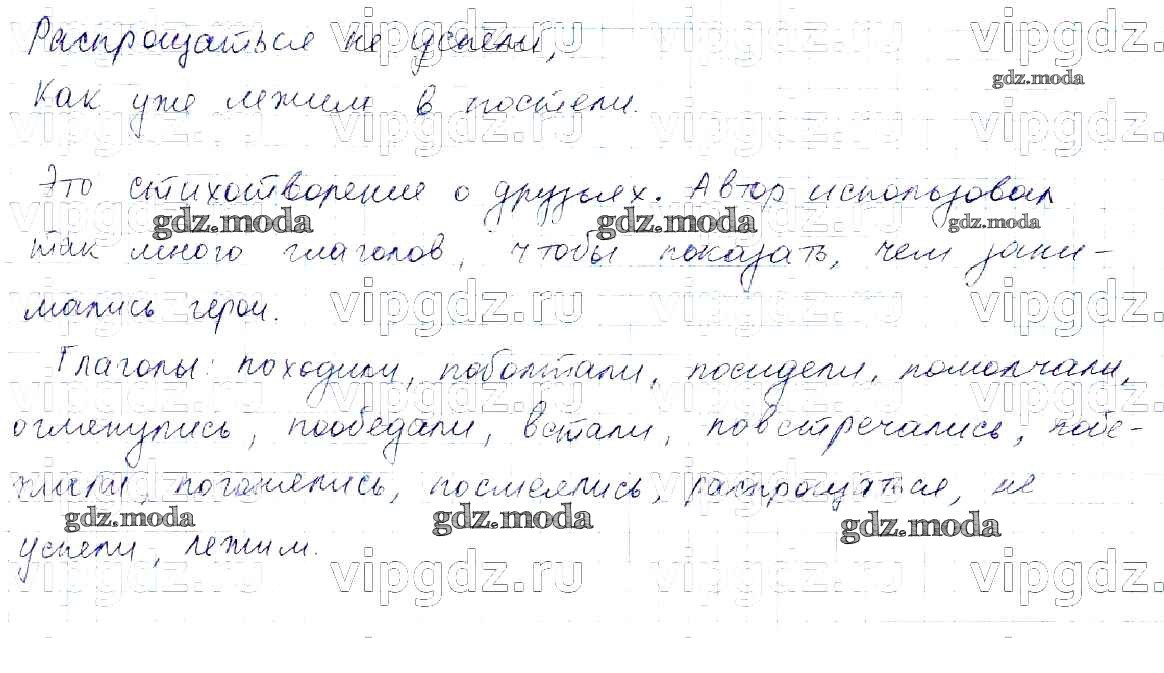 Распрощаться не успели,
Как уже лежим в постели.
Это стихотворение о друзьях. Автор использовал
так много глаголов, чтобы показать, чем зани-
мались герои.
Глаголы: походили, поболтали, посидели, помолчали,
оглянулись, пообедали, встали, повстречались, побе-
жали, погонялись, посмеялись, распрощаться, не
успели, лежим.